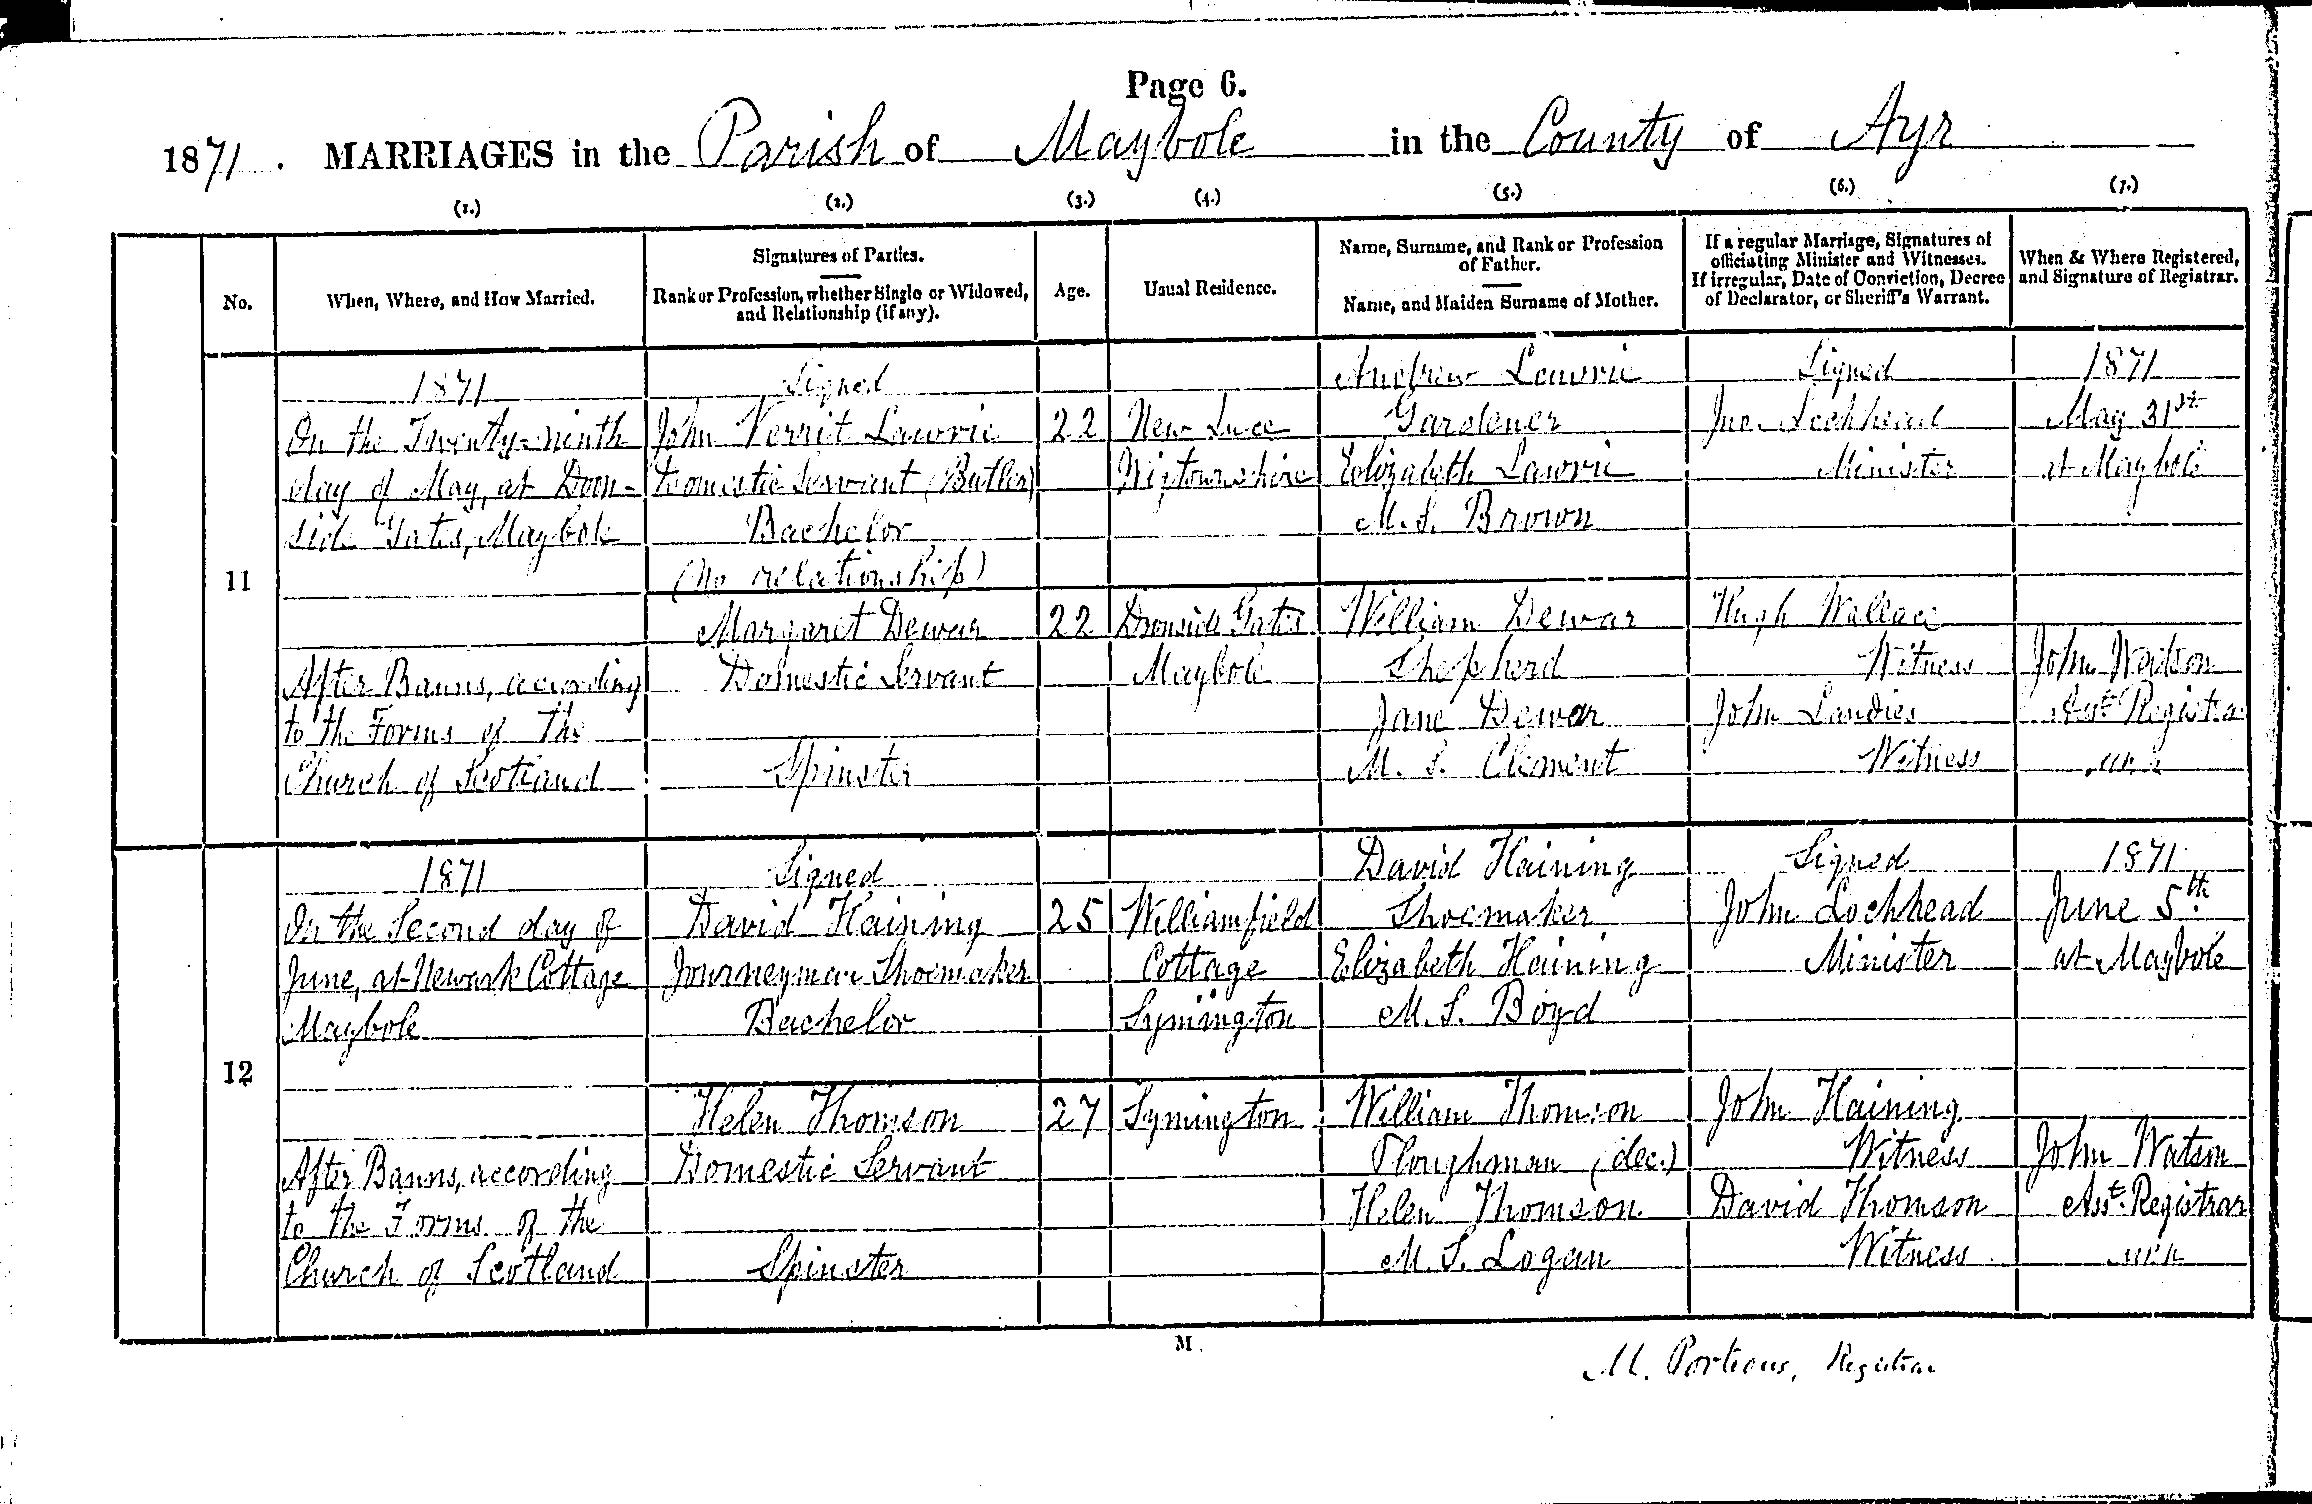 Page 6.
1871. MARRIAGES in the Parish of Maybole in the County of Ayr
(1.) (2.) (3.) (4.) (5.) (6.) (7.)
No.
When, Where, and How Married.
Signatures of Parties.
Rank or Profession, whether Single or Widowed,
and Relationship (if any).
Age.
Usual Residence.
Name, Surname, and Rank or Profession
of Father.
Name, and Maiden Surname of Mother.
If a regular Marriage, Signatures of
officiating Minister and Witnesses.
If irregular, Date of Conviction, Decree
of Declarator, or Sheriff's Warrant.
When & Where Registered,
and Signature of Registrar.
11
1871
On the Twenty-ninth
day of May, at Doon-
side Gates, Maybole
After Banns, according
to the Forms of The
Church of Scotland
Signed
John Verrit Lawrie
Domestic Servant (Butler)
Bachelor
(No relationship)
Margaret Dewar
Domestic Servant
Spinster
22
22
New Luce
Wigtownshire
Doonside Gates
Maybole
Andrew Lawrie
Gardener
Elizabeth Lawrie
M.S. Brown
William Dewar
Shepherd
Jane Dewar
M. S. Clement
Signed
Jno. Lochhead
Minister
Hugh Wallace
Witness
John Landies
Witness
1871
May 31st
at Maybole
John Watson
Asst Registrar
12
1871
On the Second day of
June, at Newark Cottage
Maybole
After Banns, according
to the Forms of the
Church of Scotland
Signed
David Haining
Journeyman Shoemaker
Bachelor
Helen Thomson
Domestic Servant
Spinster
25
27
Williamfield
Cottage
Symington
Symington
David Haining
Shoemaker
Elizabeth Haining
M. S. Boyd
William Thomson
Ploughman (dec.)
Helen Thomson
M. S. Logan
Signed
John Lochhead
Minister
John Haining
Witness
David Thomson
Witness
1871
June 5th.
at Maybole
John Watson
Asst. Registrar
M
M. Porteous, Registrar